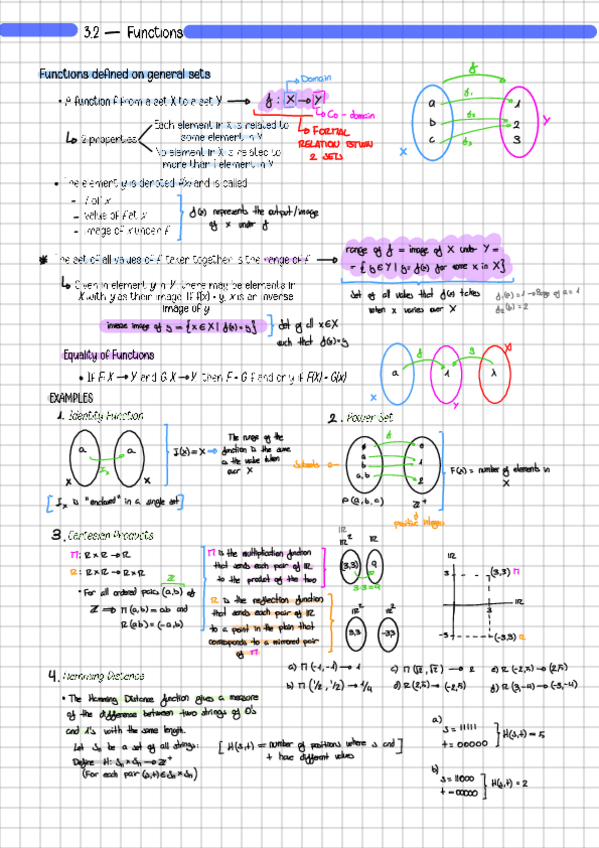 3.2 — Functions
Functions defined on general sets
Domain
• A function f from a set X to a set Y → f : X → Y
Co-domain
FORMAL
RELATION
2 SETS
2 properties
Each element in X is related to
some element in Y
No element in X is related to
more than 1 element in Y
a
b
c
1
2
3
X
Y
• The element y is denoted f(x) and is called
- f of x
- value of f at x
- image of x under f
f(x) represents the output/image
of x under f
* The set of all values of f taken together is the range of f →
range of f = image of X under
= { y ∈ Y | y = f(x) for some x in X }
Set of all values that f takes
when x varies over X
Given an element y in Y, there may be elements in
X with y as their image. If f(x) = y, x is an inverse
image of y
inverse image of y = {x ∈ X | f(x) = y}
Set of all x ∈ X
such that f(x) = y
Equality of Functions
• If F: X → Y and G: X → Y, then F = G if and only if F(x) = G(x)
EXAMPLES
1. Identity Function
I(x) = x
The range of the
function is the same
as the value taken
over X
[ Ix is "enclosed" in a single set ]
2. Power Set
Subsets
F(x) = number of elements in
X
positive integers
3. Cartesian Products
M: R x R → R
R: R x R → R x R
• For all ordered pairs (a,b) of
Z ⟹ M(a,b) = ab and
R(a,b) = (-a,b)
M is the multiplication function
that sends each pair of IR
to the product of the two
R is the reflection function
that sends each pair of IR
to a point in the plan that
corresponds to a mirrored pair
of M
(3,3)
9
3·3=9
3,3
-3,3
(3,3) M
(-3,3) R
a) M (-1,-1) → 1
b) M (1/2, 1/2) → 1/4
c) M (√2, √2) → 2
d) R (2,5) → (-2,5)
e) R (-2,5) → (2,5)
f) R (3,-4) → (-3,-4)
4. Hamming Distance
• The Hamming Distance function gives a measure
of the difference between two strings of 0's
and 1's with the same length.
Let Sn be a set of all strings:
Define H: Sn x Sn → Z+
(For each pair (s,t) ∈ Sn x Sn)
[ H(s,t) = number of positions where s and
t have different values ]
a)
s = 11111
t = 00000
H(s,t) = 5
b)
s = 11000
t = 00000
H(s,t) = 2